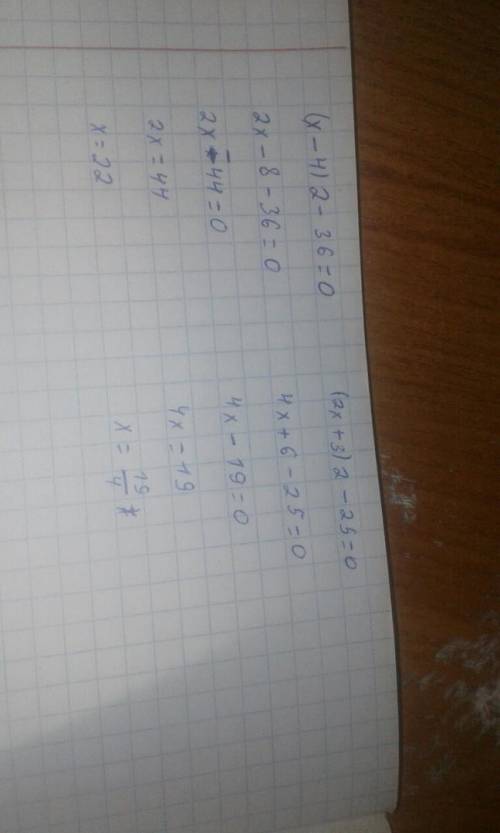 (x-4)2-36=0
2x-8-36=0
2x-44=0
2x=44
x=22
(2x+3)2-25=0
4x+6-25=0
4x-19=0
4x=19
x=19/4